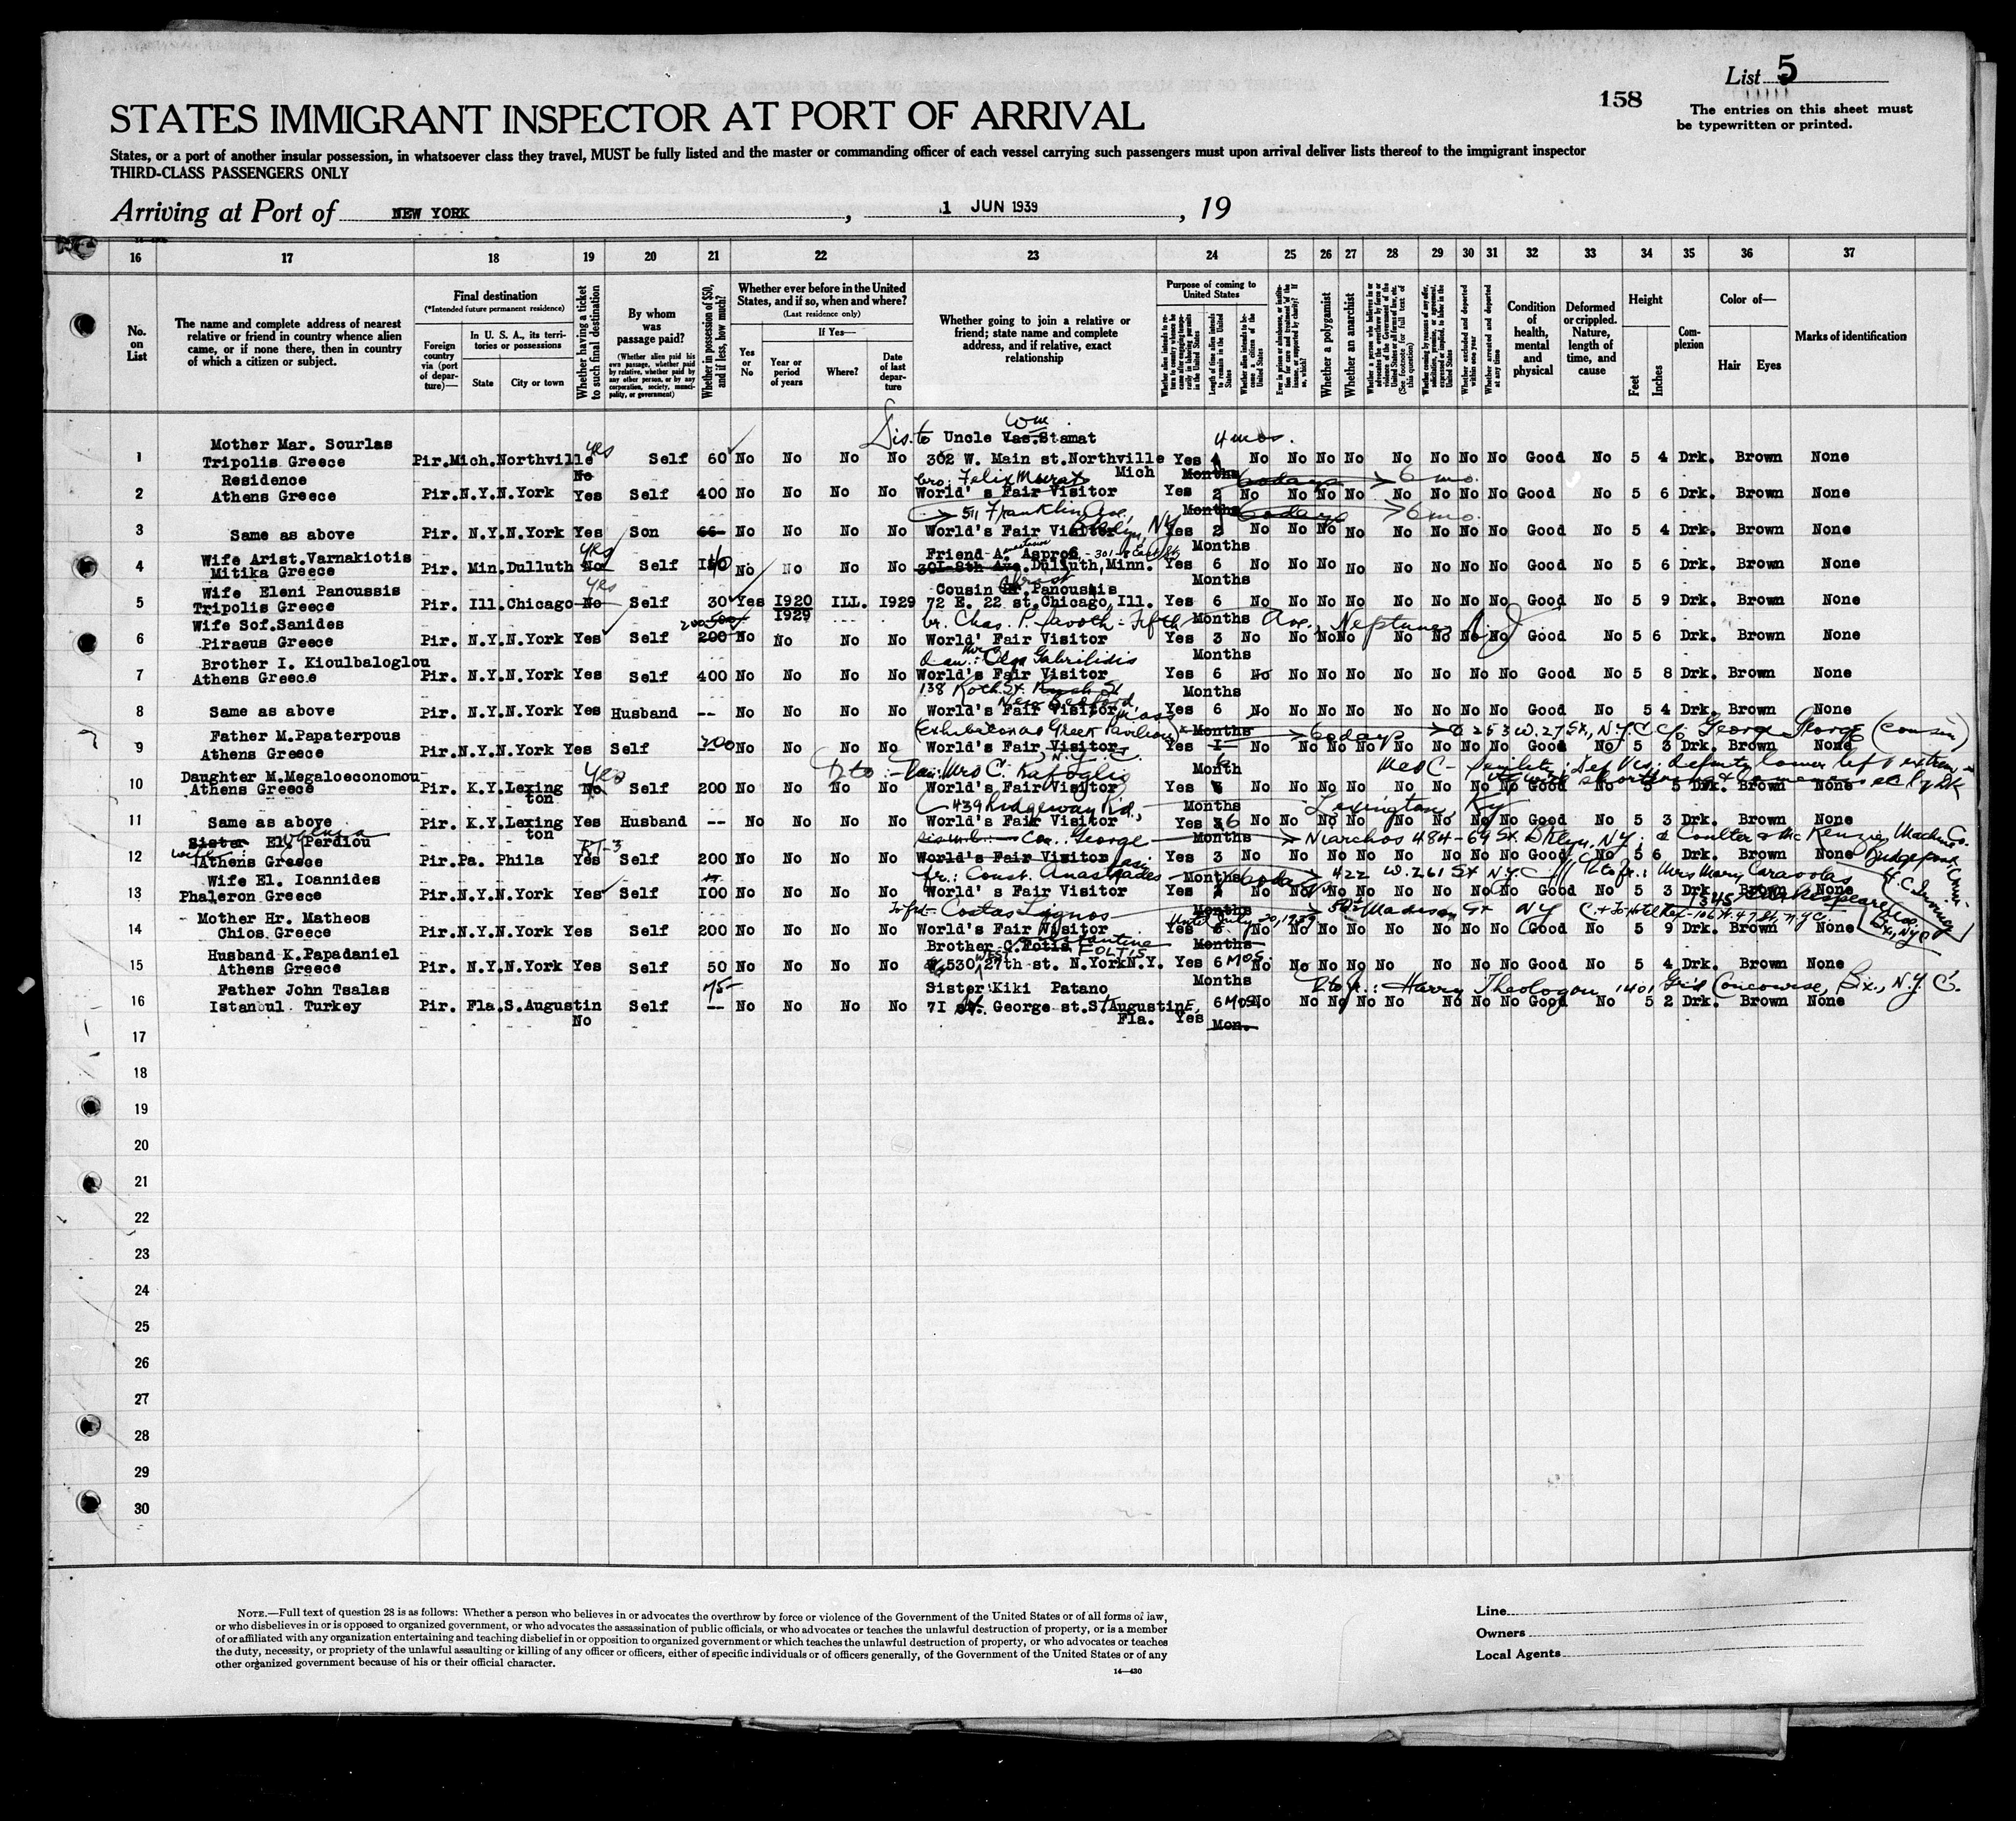 List 5
158
The entries on this sheet must
be typewritten or printed.
STATES IMMIGRANT INSPECTOR AT PORT OF ARRIVAL
States, or a port of another insular possession, in whatsoever class they travel, MUST be fully listed and the master or commanding officer of each vessel carrying such passengers must upon arrival deliver lists thereof to the immigrant inspector
THIRD-CLASS PASSENGERS ONLY
Arriving at Port of NEW YORK , 1 JUN 1939 , 19
16 17 18 19 20 21 22 23 24 25 26 27 28 29 30 31 32 33 34 35 36 37
No. on List
The name and complete address of nearest relative or friend in country whence alien came, or if none there, then in country of which a citizen or subject.
Final destination
(*Intended future permanent residence)
Foreign country via (port of departure)—
In U. S. A., its territories or possessions
State City or town
Whether having a ticket to such final destination
By whom was passage paid?
(Whether alien paid his own passage, whether paid by relative, whether paid by any other person, or by any corporation, society, municipality, or government)
Whether in possession of $50, and if less, how much?
Whether ever before in the United States, and if so, when and where?
(Last residence only)
Yes or No
If Yes—
Year or period of years
Where?
Date of last departure
Whether going to join a relative or friend; state name and complete address, and if relative, exact relationship
Purpose of coming to United States
Whether a polygamist
Whether an anarchist
Condition of health, mental and physical
Deformed or crippled. Nature, length of time, and cause
Height
Feet Inches
Complexion
Color of—
Hair Eyes
Marks of identification
Mother Mar. Sourlas Dis. to Uncle Vas. Stamat Wm 4 mos.
1 Tripolis Greece Pir. Mich. Northville yes Self 60 No No No No 302 W. Main st. Northville Yes No No No No No No No No Good No 5 4 Drk. Brown None
Residence No bro. Felix Mich Months 60 days 6 mo.
2 Athens Greece Pir. N.Y. N.York Yes Self 400 No No No No World's Fair Visitor Yes 2 No No No No No No No No Good No 5 6 Drk. Brown None
511 Franklin Ave., Months 60 days 6 mo.
3 Same as above Pir. N.Y. N.York Yes Son No No No No World's Fair Visitor Bklyn, NY Yes 2 No No No No No No No No Good No 5 4 Drk. Brown None
Wife Arist. Varnakiotis yes Friend A. Aspros 301-8 East St Months
4 Mitika Greece Pir. Min. Dulluth No Self No No No No 301-8th Ave. Dulluth, Minn. Yes 6 No No No No No No No No Good No 5 6 Drk. Brown None
Wife Eleni Panoussis yes Cousin Panoussis Months
5 Tripolis Greece Pir. Ill. Chicago No Self 30 Yes 1920 1929 ILL. 1929 72 E. 22 st. Chicago, Ill. Yes 6 No No No No No No No No Good No 5 9 Drk. Brown None
Wife Sof. Sanides br. Chas. P. Months Ave., Neptune, N.J.
6 Piraeus Greece Pir. N.Y. N.York Yes Self 200 No No No No World' Fair Visitor Yes 3 No No No No No No No No Good No 5 6 Drk. Brown None
Brother I. Kioulbaloglou dau.: Mrs Olga Gabrilidis Months
7 Athens Greece Pir. N.Y. N.York Yes Self 400 No No No No World's Fair Visitor Yes 6 No No No No No No No No Good No 5 8 Drk. Brown None
138 Koch St. New Bedford, Mass Months
8 Same as above Pir. N.Y. N.York Yes Husband -- No No No No World's Fair Visitor Yes 6 No No No No No No No No Good No 5 4 Drk. Brown None
Father M. Papaterpous (Exhibition as Greek Pavilion) Months 60 days 253 W. 27 St, N.Y.C c/o George George (cousin)
9 Athens Greece Pir. N.Y. N.York Yes Self 200 No No No No World's Fair Visitor Yes No No No No No No No No Good No 5 3 Drk. Brown None
Daughter M. Megaloeconomou Yes D to :- Dau: Mrs C. Kafoglis Month
10 Athens Greece Pir. K.Y. Lexington No Self 200 No No No No World's Fair Visitor No No No No No No No No Good No 5 5 Drk. Brown None
439 Ridgeway Rd., Months Lexington, Ky
11 Same as above Pir. K.Y. Lexington Yes Husband -- No No No No World's Fair Visitor Yes 6 No No No No No No No No Good No 5 3 Drk. Brown None
Sister El. Perdiou Con. George Months Niarchos 484-69 St. Bklyn, NY, & Coulter & McKenzie Machine Co. Bridgeport, Conn.
12 wife Athens Greece Pir. Pa. Phila Yes Self 200 No No No No World's Fair Visitor Yes 3 No No No No No No No No Good No 5 6 Drk. Brown None
Wife El. Ioannides fr.: Const. Anastasiades Months 60 days 422 W. 261 St N.Y.C. D to fr.: Mrs Mary Caravolas
13 Phaleron Greece Pir. N.Y. N.York Yes Self 100 No No No No World's Fair Visitor Yes No No No No No No No No Good No 5 3 Drk. Brown None
Mother Hr. Matheos To frd- Costas Lignos Months Until July 20, 1939 50 Madison St NY
14 Chios Greece Pir. N.Y. N.York Yes Self 200 No No No No World's Fair Visitor Yes No No No No No No No No Good No 5 9 Drk. Brown None
Husband K. Papadaniel Brother C. Fotis Constantine FOLTIS Months
15 Athens Greece Pir. N.Y. N.York Yes Self 50 No No No No 530 WEST 27th st. N.York N.Y. Yes 6 MOS. No No No No No No No No Good No 5 4 Drk. Brown None
Father John Tsalas 75 Sister Kiki Patano D to fr.: Harry Theologou 1401 Grd Concourse, Bx., N.Y.C.
16 Istanoul Turkey Pir. Fla. S.Augustin No Self -- No No No No 71 St. George st. S.Augustine, Fla. Yes 6 MOS. Mon. No No No No No No No No Good No 5 2 Drk. Brown None
17
18
19
20
21
22
23
24
25
26
27
28
29
30
NOTE.—Full text of question 28 is as follows: Whether a person who believes in or advocates the overthrow by force or violence of the Government of the United States or of all forms of law,
or who disbelieves in or is opposed to organized government, or who advocates the assassination of public officials, or who advocates or teaches the unlawful destruction of property, or is a member
of or affiliated with any organization entertaining and teaching disbelief in or opposition to organized government or which teaches the unlawful destruction of property, or who advocates or teaches
the duty, necessity, or propriety of the unlawful assaulting or killing of any officer or officers, either of specific individuals or of officers generally, of the Government of the United States or of any
other organized government because of his or their official character.
14—430
Line
Owners
Local Agents